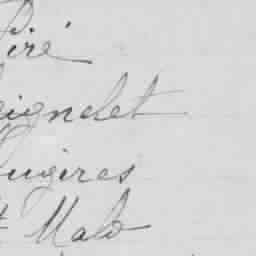 Piré
eignelet
ugères
t Malo